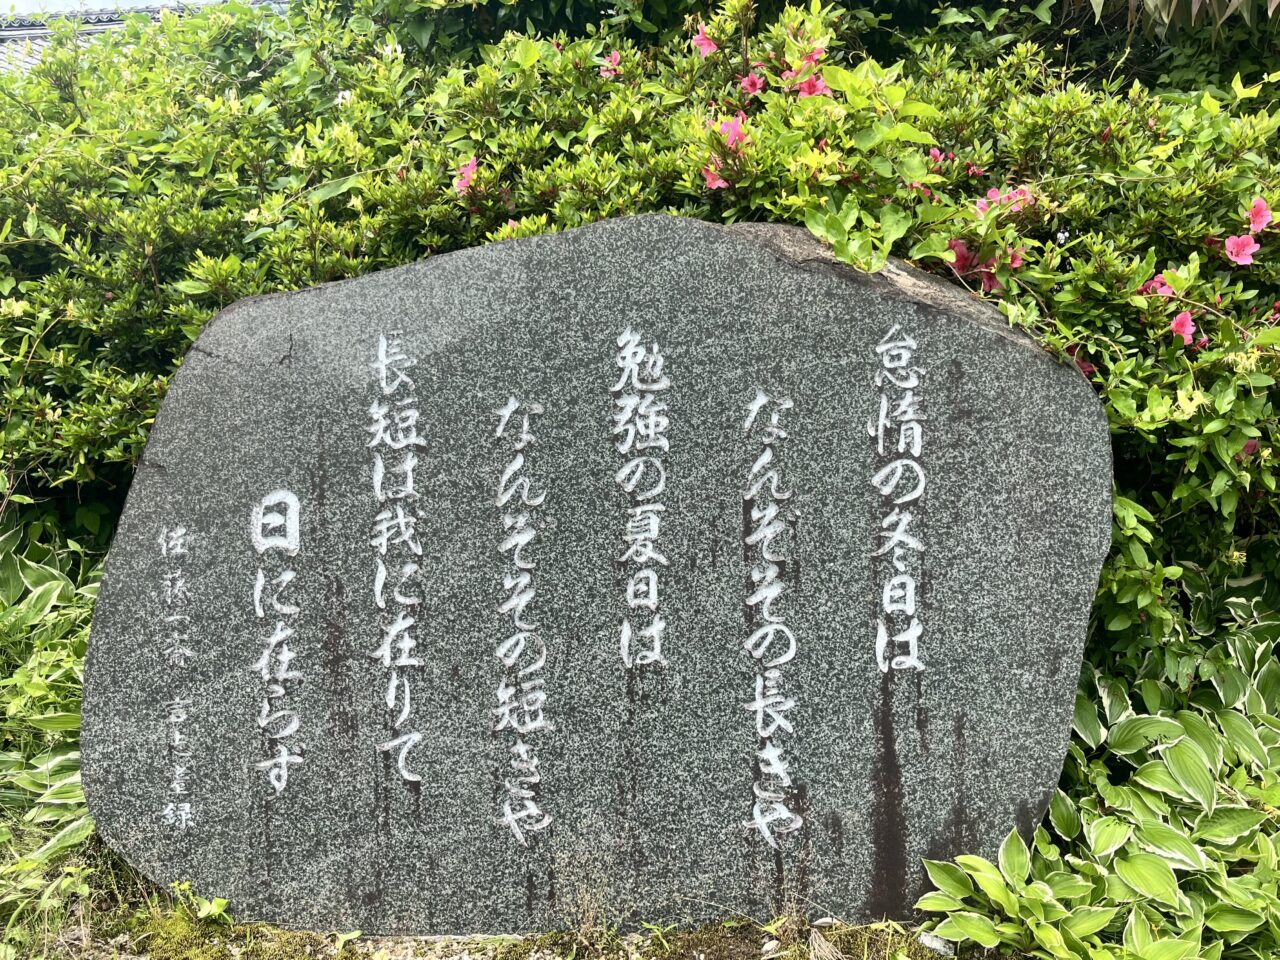 怠惰の冬日は
なんぞその長きや
勉強の夏日は
なんぞその短きや
長短は我に在りて
日に在らず
佐藤一斎 言志耋録